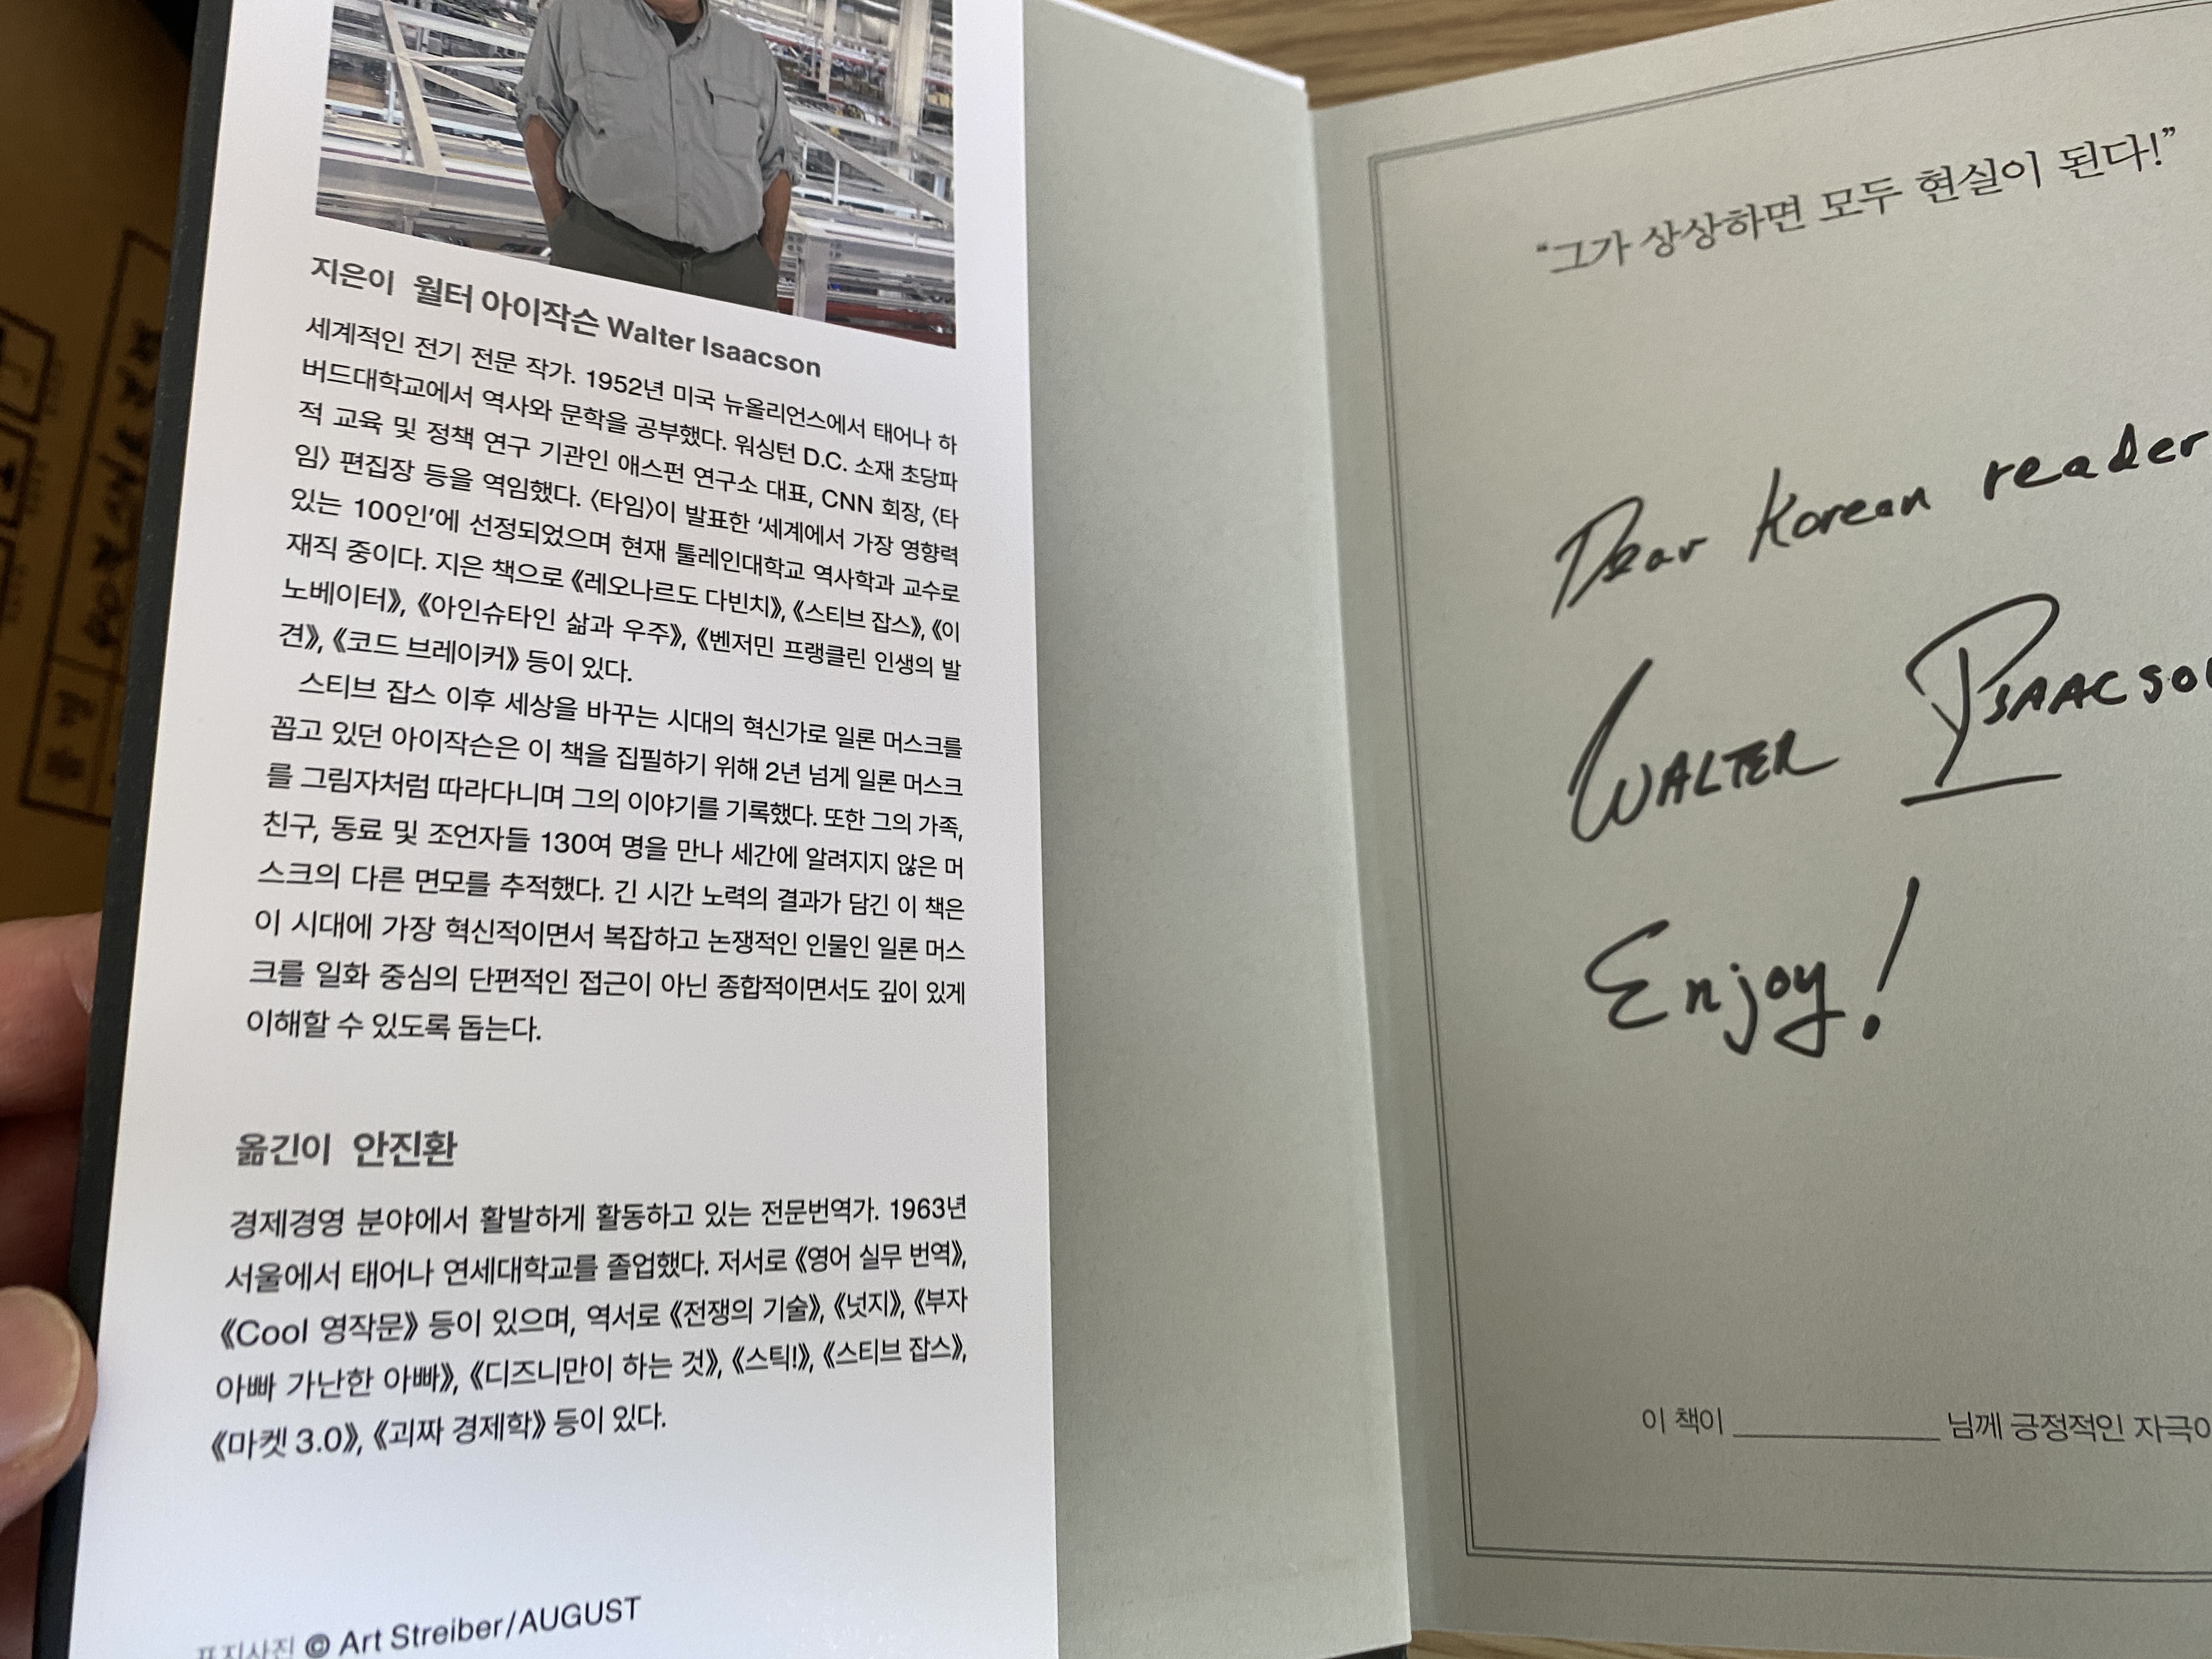 지은이 월터 아이작슨 Walter Isaacson
세계적인 전기 전문 작가. 1952년 미국 뉴올리언스에서 태어나 하
버드대학교에서 역사와 문학을 공부했다. 워싱턴 D.C. 소재 초당파
적 교육 및 정책 연구 기관인 애스펀 연구소 대표, CNN 회장, 〈타
임〉 편집장 등을 역임했다. 〈타임〉이 발표한 ‘세계에서 가장 영향력
있는 100인’에 선정되었으며 현재 툴레인대학교 역사학과 교수로
재직 중이다. 지은 책으로 《레오나르도 다빈치》, 《스티브 잡스》, 《이
노베이터》, 《아인슈타인 삶과 우주》, 《벤저민 프랭클린 인생의 발
견》, 《코드 브레이커》 등이 있다.
스티브 잡스 이후 세상을 바꾸는 시대의 혁신가로 일론 머스크를
꼽고 있던 아이작슨은 이 책을 집필하기 위해 2년 넘게 일론 머스크
를 그림자처럼 따라다니며 그의 이야기를 기록했다. 또한 그의 가족,
친구, 동료 및 조언자들 130여 명을 만나 세간에 알려지지 않은 머
스크의 다른 면모를 추적했다. 긴 시간 노력의 결과가 담긴 이 책은
이 시대에 가장 혁신적이면서 복잡하고 논쟁적인 인물인 일론 머스
크를 일화 중심의 단편적인 접근이 아닌 종합적이면서도 깊이 있게
이해할 수 있도록 돕는다.
옮긴이 안진환
경제경영 분야에서 활발하게 활동하고 있는 전문번역가. 1963년
서울에서 태어나 연세대학교를 졸업했다. 저서로 《영어 실무 번역》,
《Cool 영작문》 등이 있으며, 역서로 《전쟁의 기술》, 《넛지》, 《부자
아빠 가난한 아빠》, 《디즈니만이 하는 것》, 《스틱!》, 《스티브 잡스》,
《마켓 3.0》, 《괴짜 경제학》 등이 있다.
표지사진 © Art Streiber/AUGUST
“그가 상상하면 모두 현실이 된다!”
Dear Korean reader
WALTER ISAACSON
Enjoy!
이 책이 ____________ 님께 긍정적인 자극이